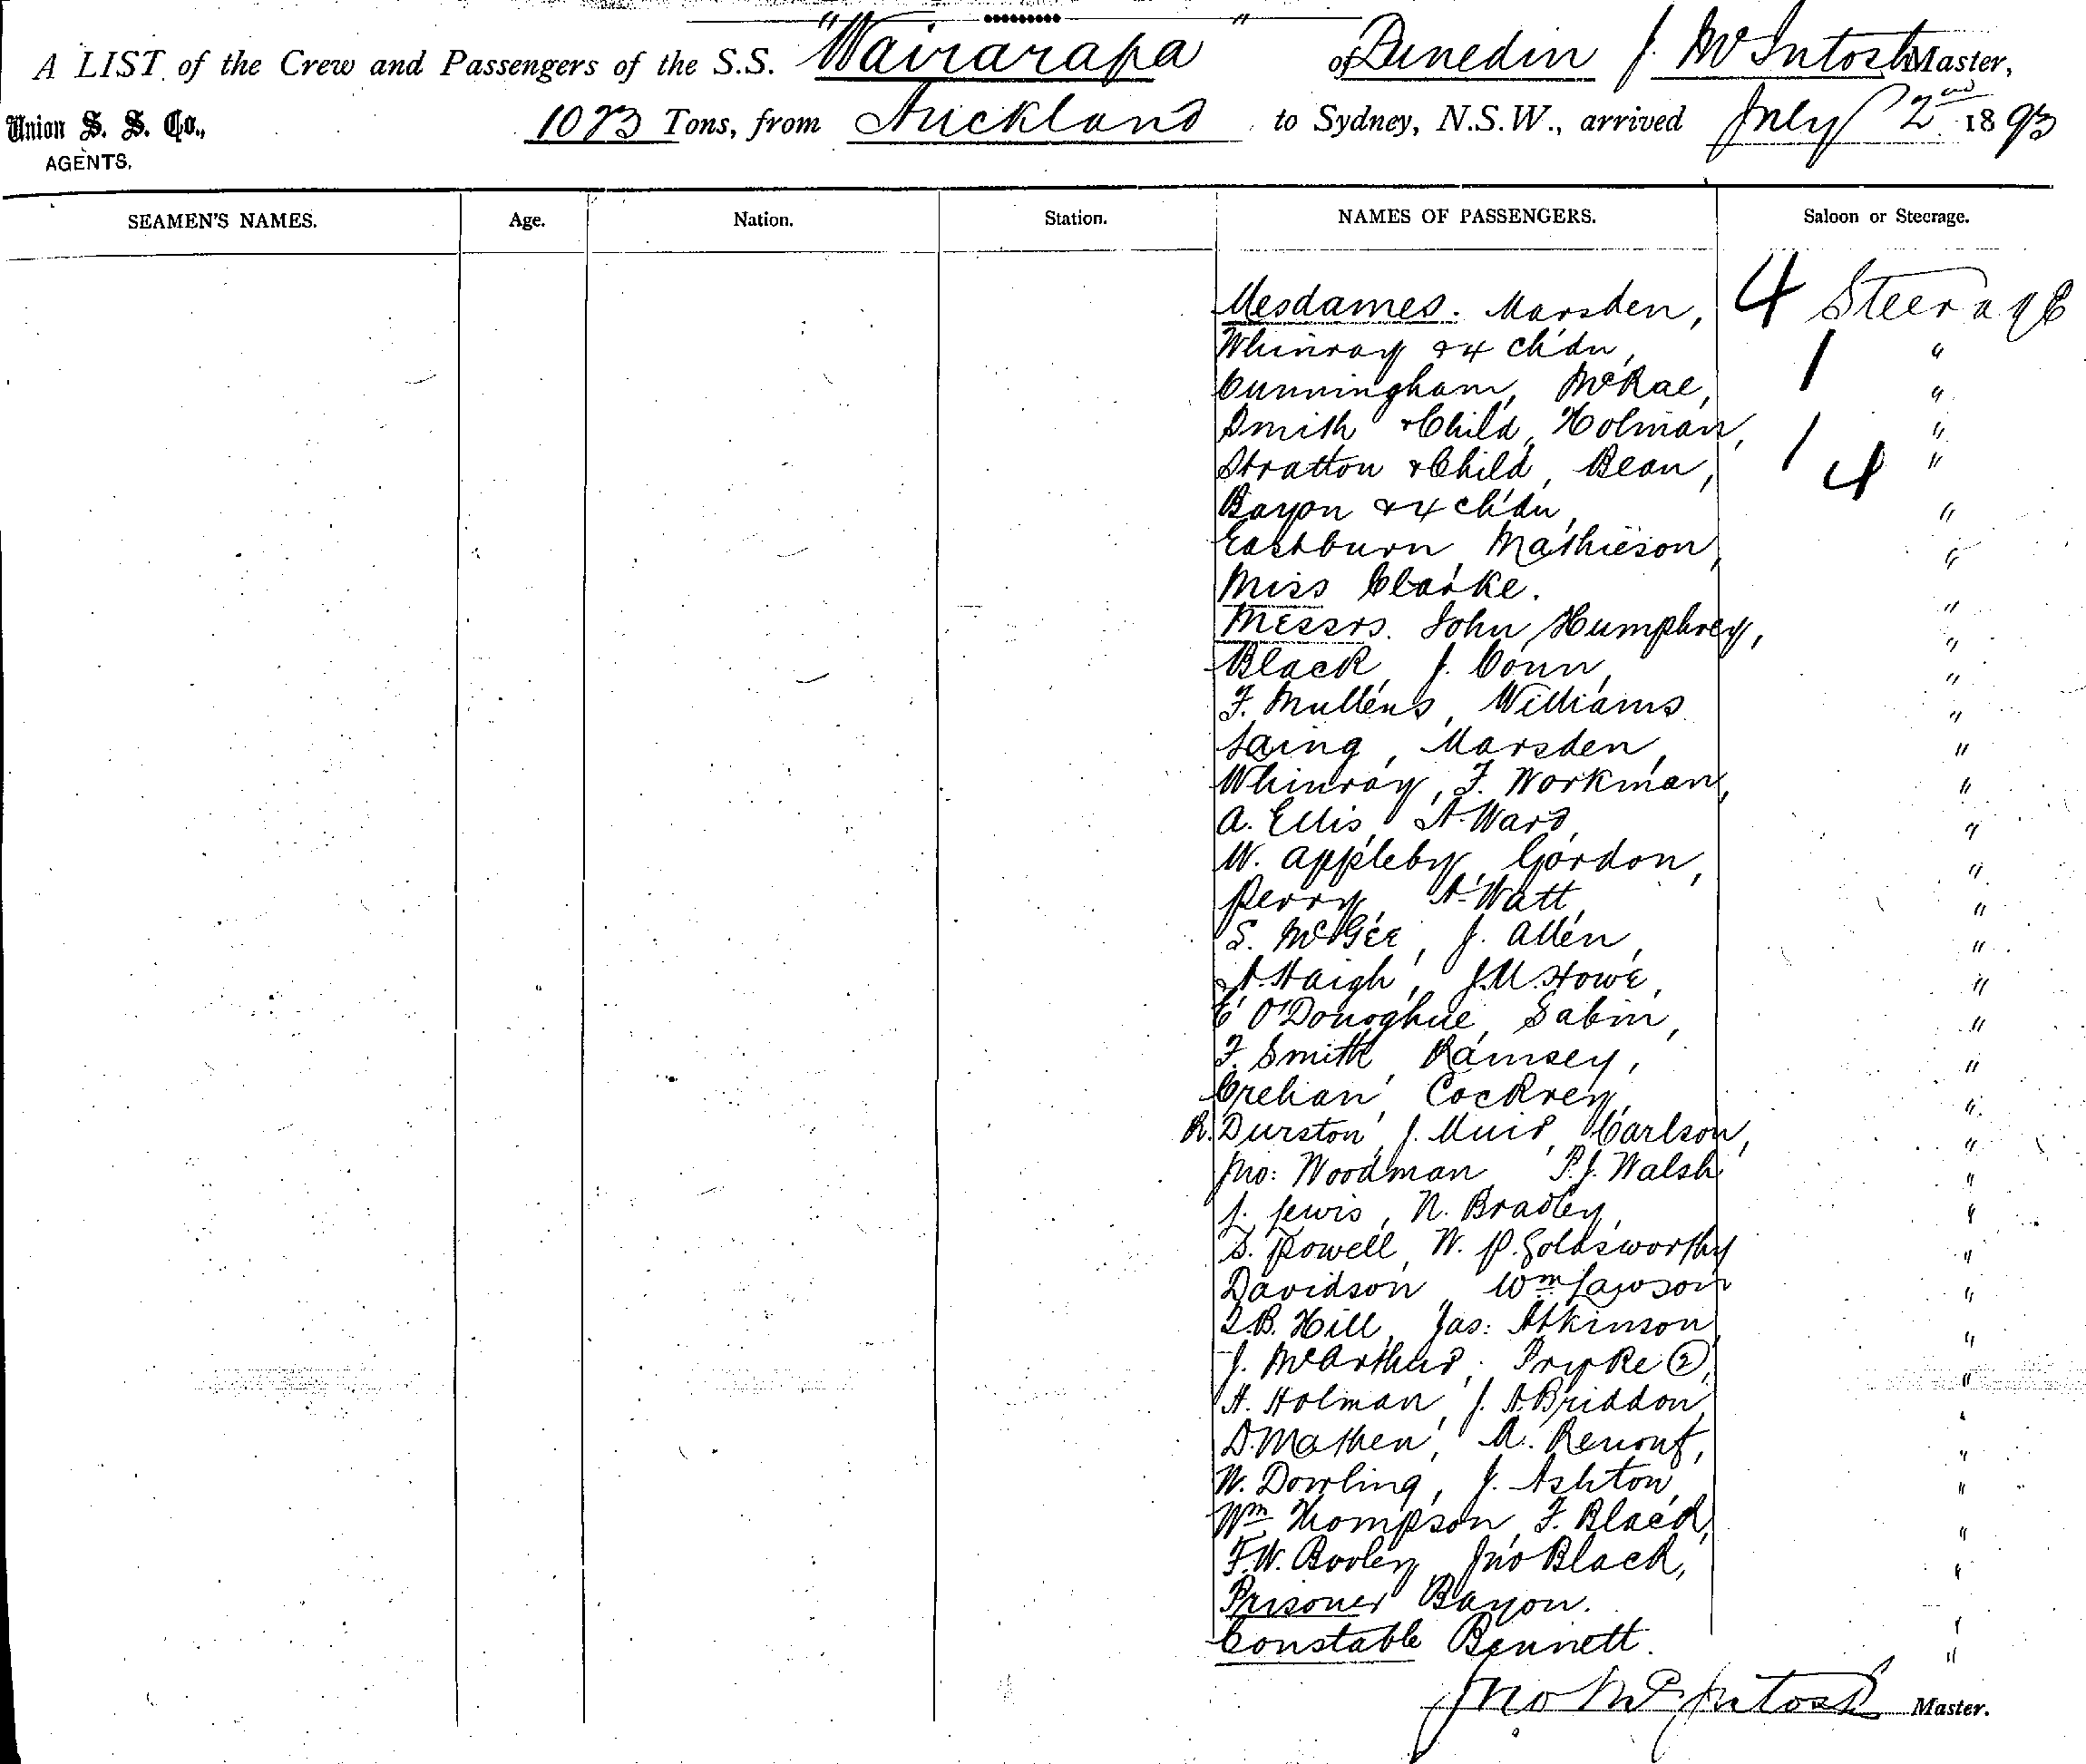 A LIST of the Crew and Passengers of the S.S. "Wairarapa" of Dunedin J. McIntosh Master,
Union S. S. Co., 1073 Tons, from Auckland to Sydney, N.S.W., arrived July 2nd 1893
AGENTS.
SEAMEN'S NAMES. Age. Nation. Station. NAMES OF PASSENGERS. Saloon or Steerage.
Mesdames. Marsden, 4 Steerage
Whinray & 4 ch'dn, 1 "
Cunningham, McRae, "
Smith & Child, Holman, 1 "
Stratton & Child, Bean, 4 "
Bayon & 4 ch'dn, "
Eastburn, Mathieson, "
Miss Clarke. "
Messrs. John Humphrey, "
Black, J. Conn, "
F. Mullens, Williams "
Laing, Marsden, "
Whinray, F. Workman, "
A. Ellis, A. Ward, "
W. Appleby, Gordon, "
Perry, A. Watt, "
S. McGee, J. Allen, "
A. Haigh, J.M. Howe, "
E O'Donoghue, Sabin, "
F. Smith, Ramsey, "
Crehan, Cockrey, "
R. Durston, J. Muir, Carlson, "
Jno: Woodman, P.J. Walsh "
J. Lewis, N. Bradley, "
S. Powell, W. P. Goldsworthy "
Davidson, Wm Lawson "
J.B. Hill, Jas: Atkinson, "
J. McArthur, Pryke (2), "
A. Holman, J. A. Briddon, "
D. Mathen, A. Renouf, "
W. Dowling, J. Ashton, "
Wm Thompson, F. Black, "
F.W. Booley, Jno Black, "
Prisoner Bayon. "
Constable Bennett. "
Jno McIntosh Master.